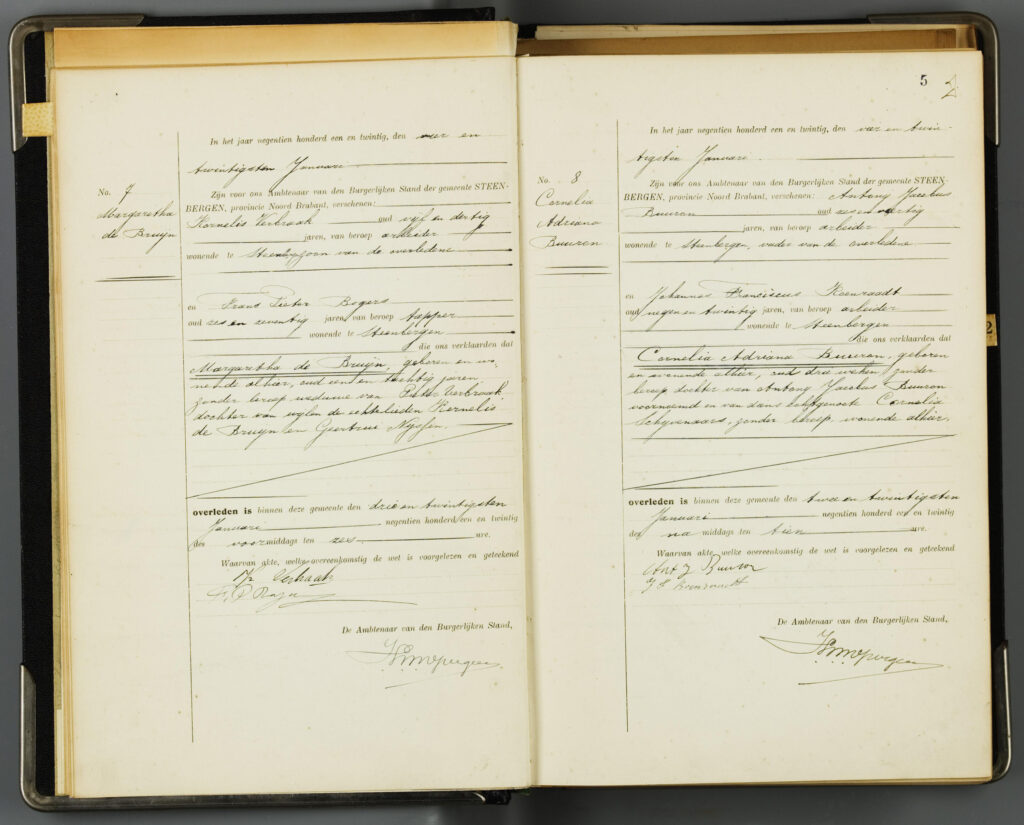 In het jaar negentien honderd een en twintig, den vier en
twintigsten Januari
No. 7
Margaretha
de Bruyn
Zijn voor ons Ambtenaar van den Burgerlijken Stand der gemeente STEEN-
BERGEN, provincie Noord Brabant, verschenen:
Kornelis Verbraak oud vijf en dertig
jaren, van beroep arbeider
wonende te Steenbergen, zoon van de overledene
en Frans Pieter Bogers
oud zes en zeventig jaren, van beroep tapper
wonende te Steenbergen
die ons verklaarden dat
Margaretha de Bruyn, geboren en wo-
nende alhier, oud een en tachtig jaren,
zonder beroep weduwe van Pieter Verbraak
dochter van wijlen de echtelieden Kornelis
de Bruyn en Geertrui Nyssen.
overleden is binnen deze gemeente den drie en twintigsten
Januari negentien honderd een en twintig
des voormiddags ten zes ure.
Waarvan akte, welke overeenkomstig de wet is voorgelezen en geteekend
Verbraak
De Ambtenaar van den Burgerlijken Stand,
5
2
In het jaar negentien honderd een en twintig, den vier en twin-
tigsten Januari
No. 8
Cornelia
Adriana
Buuron
Zijn voor ons Ambtenaar van den Burgerlijken Stand der gemeente STEEN-
BERGEN, provincie Noord Brabant, verschenen: Antony Jacobus
Buuron oud zeven veertig
jaren, van beroep arbeider
wonende te Steenbergen, vader van de overledene
en Johannes Franciscus Koenraadt
oud negen en twintig jaren, van beroep arbeider
wonende te Steenbergen
die ons verklaarden dat
Cornelia Adriana Buuron, geboren
en wonende alhier, oud drie weken, zonder
beroep dochter van Antony Jacobus Buuron
voornoemd en van diens echtgenoote Cornelia
Schyvenaars, zonder beroep, wonende alhier.
overleden is binnen deze gemeente den twee en twintigsten
Januari negentien honderd een en twintig
des na middags ten tien ure.
Waarvan akte, welke overeenkomstig de wet is voorgelezen en geteekend
Ant J Buuron
De Ambtenaar van den Burgerlijken Stand,
2